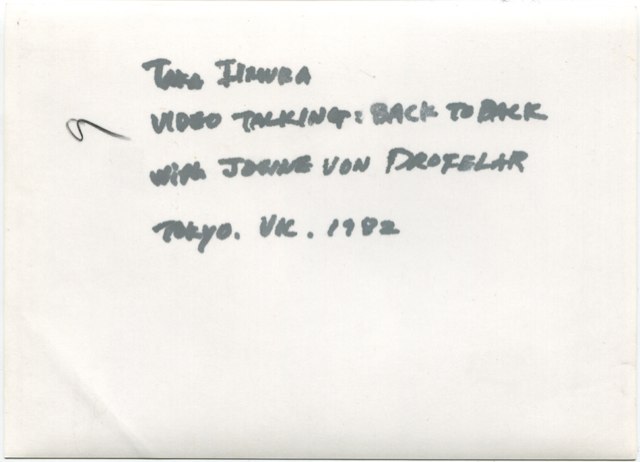 Taka Iimura
VIDEO TALKING: BACK TO BACK
with JOANNE VON
TOKYO. VIC. 1982